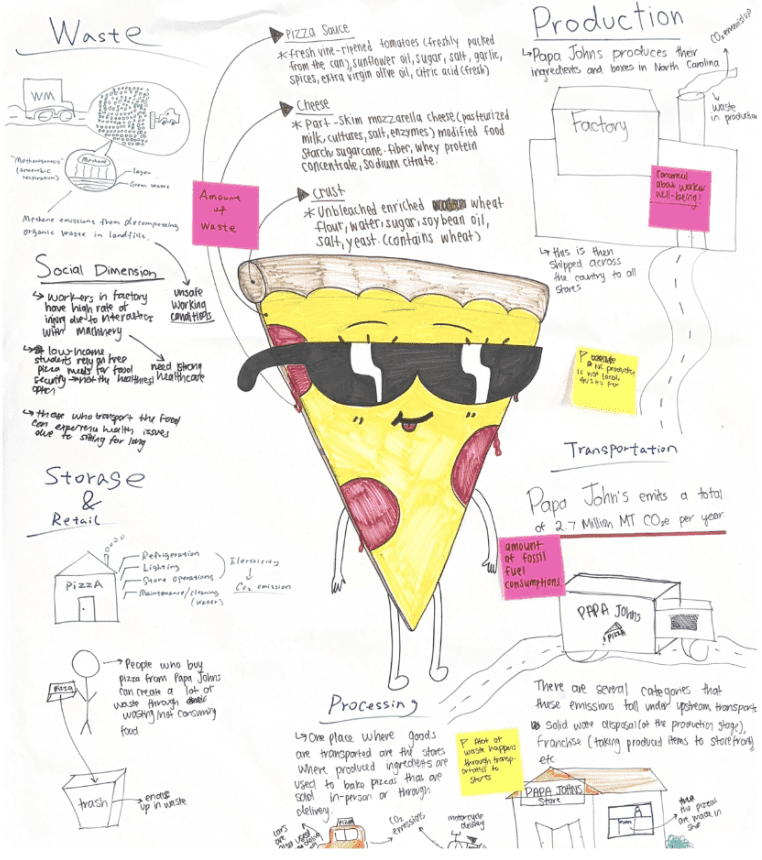 Waste
WM
"Methanogenesis"
(anaerobic
respiration)
Methane
Layer
Green waste
Methane emissions from decomposing
organic waste in landfills.
Pizza Sauce
* fresh vine-ripened tomatoes (freshly packed
from the can), sunflower oil, sugar, salt, garlic,
spices, extra virgin olive oil, citric acid (fresh)
Cheese
* Part-skim mozzarella cheese (pasteurized
milk, cultures, salt, enzymes) modified food
starch, sugarcane fiber, whey protein
concentrate, sodium citrate.
Crust
* Unbleached enriched wheat
flour, water, sugar, soybean oil,
salt, yeast. (contains wheat)
Amount
of
Waste
Production
Papa Johns produces their
ingredients and boxes in North Carolina
CO2 emissions
Waste
in production
Factory
Concerned
about worker
well-being!
this is then
shipped across
the country to all
stores
Social Dimension
Workers in factory
have high rate of
injury due to interactions
with machinery
unsafe
working
conditions
low-income
students rely on free
pizza meals for food
security → not the healthiest
option
need strong
healthcare
those who transport the food
can experience health issues
due to sitting for long
NC production
is not local,
Transportation
Papa John's emits a total
of 2.7 Million MT CO2e per year
amount
of fossil
fuel
consumptions
PAPA JOHNS
PIZZA
There are several categories that
these emissions fall under upstream transport
solid waste disposal (at the production stage),
franchise (taking produced items to storefront)
etc
Storage
&
Retail
PIZZA
Refrigeration
Lighting
Store operations
Maintenance/cleaning
(water)
Electricity
CO2 emission
pizza
People who buy
pizza from Papa Johns
can create a lot of
waste through
wasting/not consuming
food
trash
ends
up in waste
Processing
One place where goods
are transported are the stores
where produced ingredients are
used to bake pizzas that are
sold in-person or through
delivery.
A lot of
waste happens
through transp-
ortation to
stores
cars
are
also used
PIZZA
CO2
emissions
motorcycle
delivery
PAPA JOHNS
Store
the pizzas
are made in